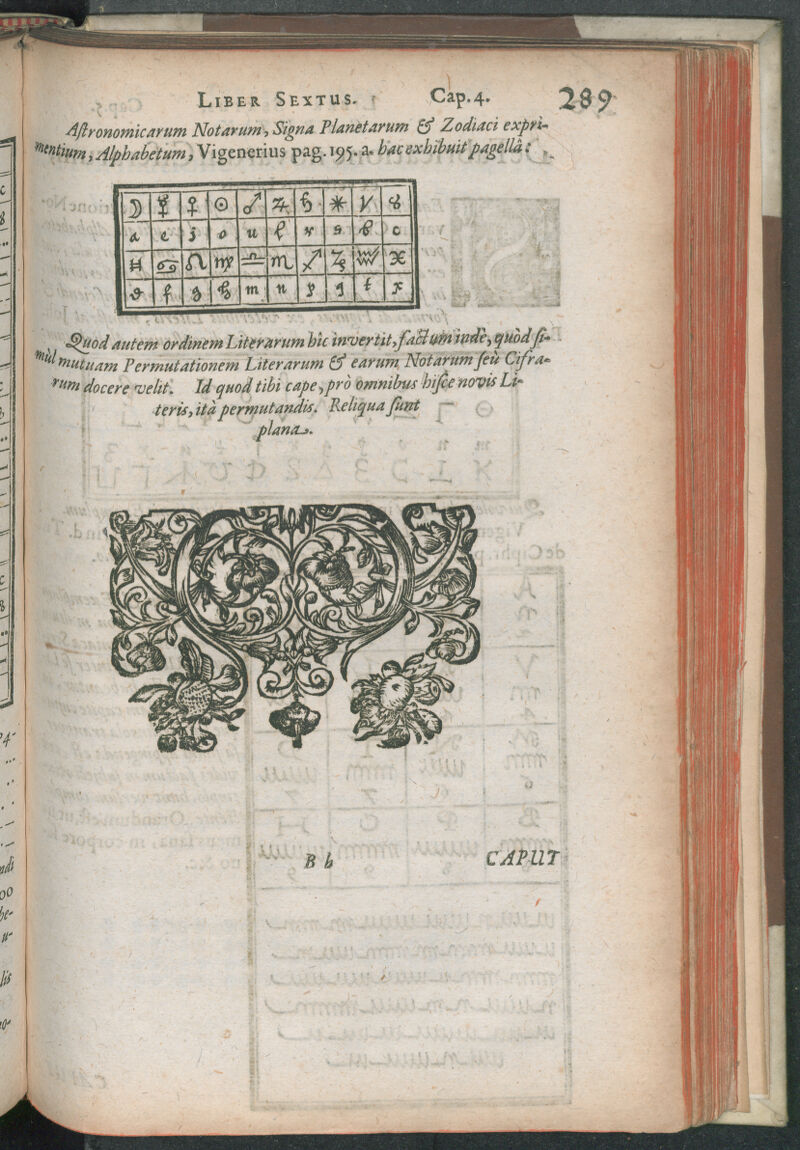 LIBER SEXTUS. Cap. 4. 289
Aſtronomicarum Notarum, Signa Planetarum & Zodiaci expri-
mentium, Alphabetum, Vigenerius pag. 195. a. hac exhibuit pagellâ:
☽ ☿ ♀ ☉ ♂ ♃ ♄ ✶ ♈ ♉
a e i o u l r s b c
♊ ♋ ♌ ♍ ♎ ♏ ♐ ♑ ♒ ♓
d f g h m n p q t x
Quod autem ordinem Literarum hîc invertit, factum inde, quòd ſi-
mul mutuam Permutationem Literarum & earum Notarum ſeu Cifra-
rum docere velit. Id quod tibi cape, prò omnibus hiſce novis Li-
teris, ità permutandis. Reliqua ſunt
plana.
B b CAPUT